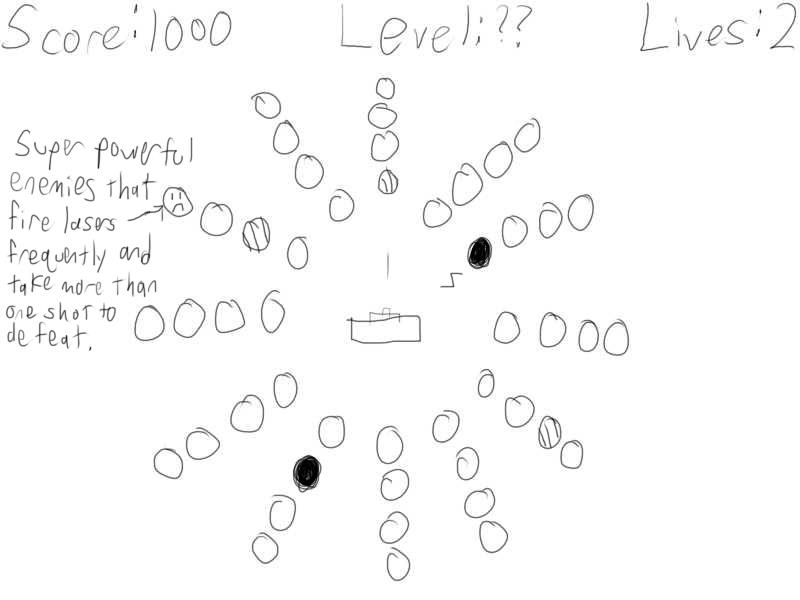 Score:1000
Level:??
Lives:2
Super powerful
enemies that
fire lasers
frequently and
take more than
one shot to
defeat.